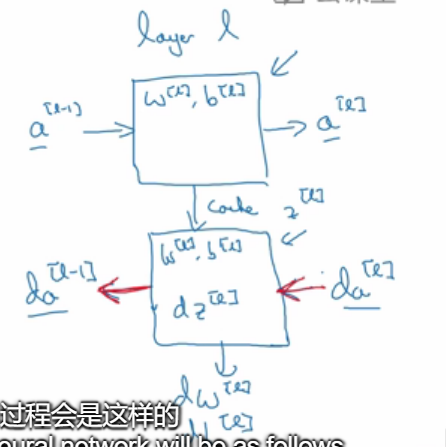 layer l
w^[l], b^[l]
a^[l-1]
a^[l]
cache z^[l]
w^[l], b^[l]
da^[l-1]
da^[l]
dz^[l]
dw^[l]
过程会是这样的
neural network will be as follows